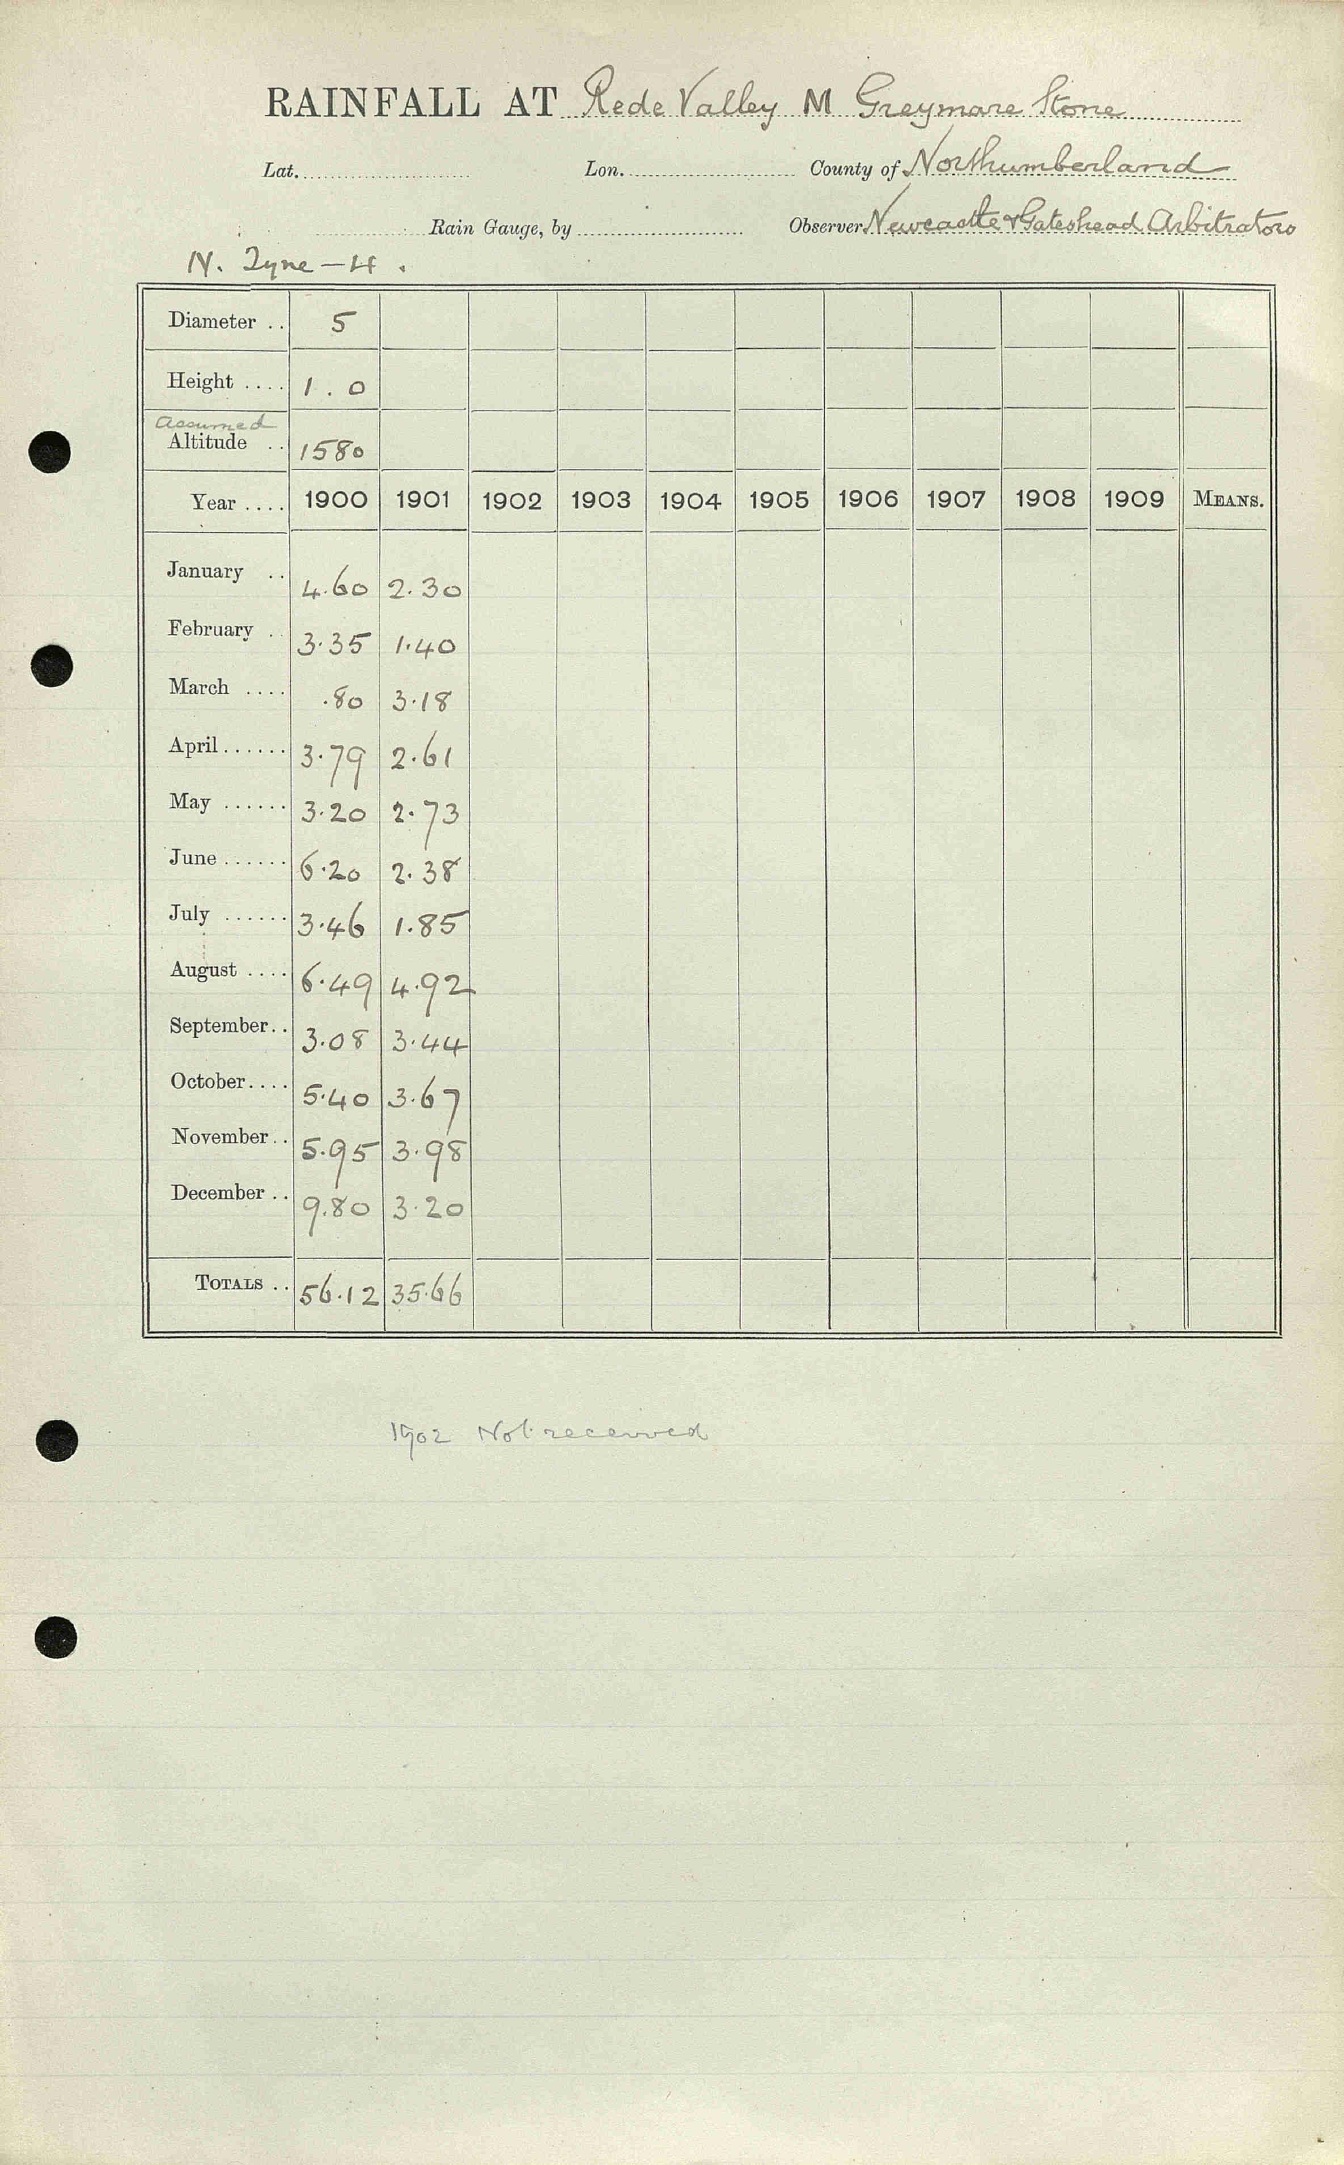 RAINFALL AT Rede Valley M Greymare Stone
Lat. Lon. County of Northumberland
Rain Gauge, by Observer Newcastle & Gateshead Arbitrators
N. Tyne — 4.
Diameter .. 5
Height .... 1.0
assumed
Altitude .. 1580
Year .... 1900 1901 1902 1903 1904 1905 1906 1907 1908 1909 MEANS.
January .. 4.60 2.30
February .. 3.35 1.40
March .... .80 3.18
April...... 3.79 2.61
May ...... 3.20 2.73
June...... 6.20 2.38
July ...... 3.46 1.85
August .... 6.49 4.92
September.. 3.08 3.44
October.... 5.40 3.67
November.. 5.95 3.98
December .. 9.80 3.20
TOTALS .. 56.12 35.66
1902 Not received